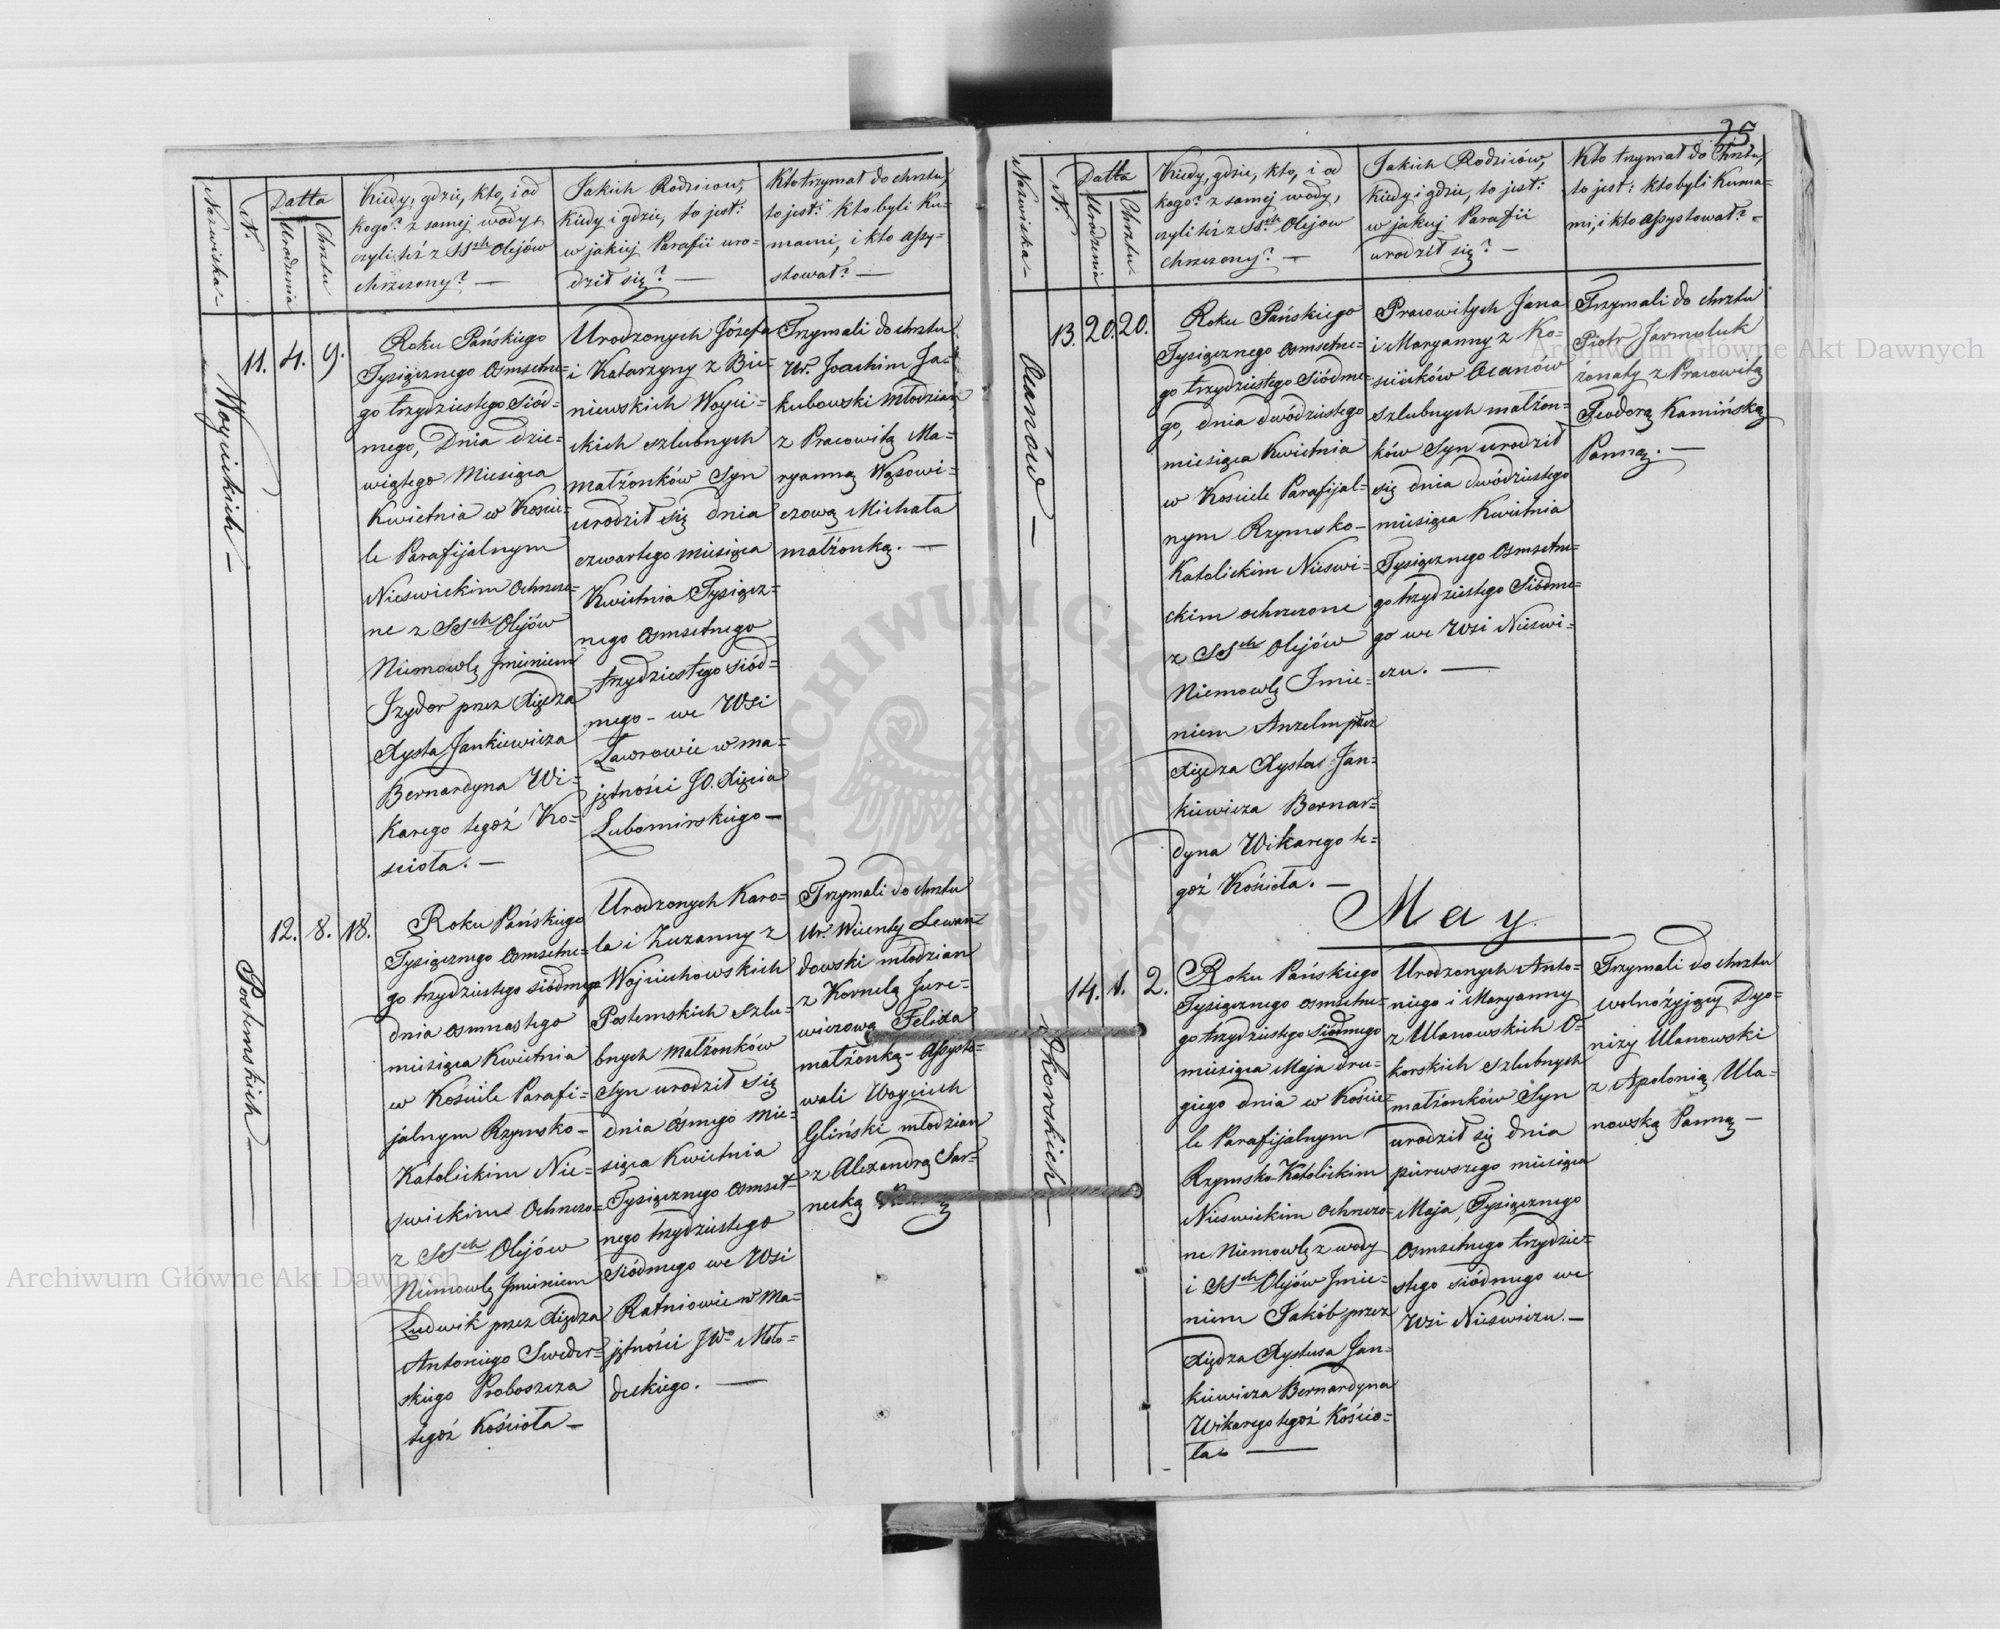 Nazwiska
N.
Datta
Urodzenia
Chrztu
Kiedy, gdzie, kto, i od
kogo? z samej wody,
czyli téż z SSch Olejów
chrzczony? —
Jakich Rodziców,
kiedy i gdzie, to jest:
w jakiej Parafii uro-
dził się? —
Kto trzymał do chrztu,
to jest: kto byli Ku-
mami, i kto assy-
stował? —
Woycickich —
11. 4. 9.
Roku Pańskiego
Tysiącznego Osmsetne-
go trzydziestego Siód-
mego, Dnia dzie-
wiątego Miesiąca
Kwietnia w Koście-
le Parafijalnym
Nieswickim Ochrzczo-
ne z SSch Olejów
Niemowlę Imieniem
Izydor przez Xiędza
Xysta Jankiewicza
Bernardyna Wi-
karego tegoż Ko-
scioła. —
Urodzonych Józefa
i Katarzyny z Bie-
niewskich Woyci-
ckich szlubnych
małżonków Syn
urodził się dnia
czwartego miesiąca
Kwietnia Tysiącz-
nego Osmsetnego
trzydziestego siód-
mego - we Wsi
Ławrowie w ma-
jętności JO. Xięcia
Lubomirskiego —
Trzymali do chrztu
Ur. Joachim Ja-
kubowski młodzian
z Pracowitą Ma-
ryanną Wąsowi-
czową Michała
małżonką. —
Postemskich —
12. 8. 18.
Roku Pańskiego
Tysiącznego Osmsetne-
go trzydziestego siódmego
dnia osmnastego
miesiąca Kwietnia
w Kościele Parafi-
jalnym Rzymsko-
Katolickim Nie-
swickim Ochrzczo-
z SSch Olejów
Niemowlę Imieniem
Ludwik przez Xiędza
Antoniego Sweder-
skiego Proboszcza
tegoż Kościoła —
Urodzonych Karo-
la i Zuzanny z
Wojciechowskich
Postemskich szlu-
bnych małżonków
Syn urodził się
dnia ósmego mie-
siąca Kwietnia
Tysiącznego Osmset-
nego trzydziestego
siódmego we Wsi
Ratniowie w ma-
jętności JWo Moło-
deckiego. —
Trzymali do chrztu
Ur. Wicenty Lewan-
dowski młodzian
z Kornelą Jure-
wiczową Felixa
małżonką - Assysto-
wali Woyciech
Gliński młodzian
z Alexandrą Sar-
necką
25
Nazwiska
N.
Datta
Urodzenia
Chrztu
Kiedy, gdzie, kto, i od
kogo? z samej wody,
czyli téż z SSch Olejow
chrzczony? —
Jakich Rodziców,
kiedy i gdzie, to jest:
w jakiej Parafii
urodził się? —
Kto trzymał do Chrztu,
to jest: kto byli Kuma-
mi, i kto assystował? -
Ocanów —
13. 20. 20.
Roku Pańskiego
Tysiącznego Osmsetne-
go trzydziestego Siódme-
go, dnia dwódziestego
miesiąca Kwietnia
w Kosciele Parafijal-
nym Rzymsko-
Katolickim Nieswi-
ckim ochrzczone
z SSch Olejów
Niemowlę Imie-
niem Anzelm przez
Xiędza Xystas Jan-
kiewicza Bernar-
dyna Wikarego te-
goż Kościoła. —
Pracowitych Jana
i Maryanny z Ko-
sciuków Ocanów
szlubnych małżon-
ków Syn urodził
się dnia dwódziestego
miesiąca Kwietnia
Tysiącznego Osmsetne-
go trzydziestego Siódme-
go we Wsi Nieswi-
czu. —
Trzymali do chrztu
Piotr Jarmoluk
żonaty z Pracowitą
Teodorą Kamińską
Panną. —
May
Okorskich —
14. 1. 2.
Roku Pańskiego
Tysiącznego osmsetne-
go trzydziestego siódmego
miesiąca Maja dru-
giego dnia w Koście-
le Parafijalnym
Rzymsko-Katolickim
Nieswickim ochrzczo-
ne Niemowlę z wody
i SSch Olejów Imie-
niem Jakób przez
Xiędza Xystusa Jan-
kiewicza Bernardyna
Wikarego tegoż Kościo-
ła — 
Urodzonych Anto-
niego i Maryanny
z Ulanowskich O-
korskich szlubnych
małżonków Syn
urodził się dnia
pierwszego miesiąca
Maja, Tysiącznego
Osmsetnego trzydzie-
stego siódmego we
Wsi Nieswiczu. —
Trzymali do chrztu
wolnożyjący Dyo-
nizy Ulanowski
z Apolonią Ula-
nowską Panną —
Archiwum Główne Akt Dawnych
Archiwum Główne Akt Dawnych